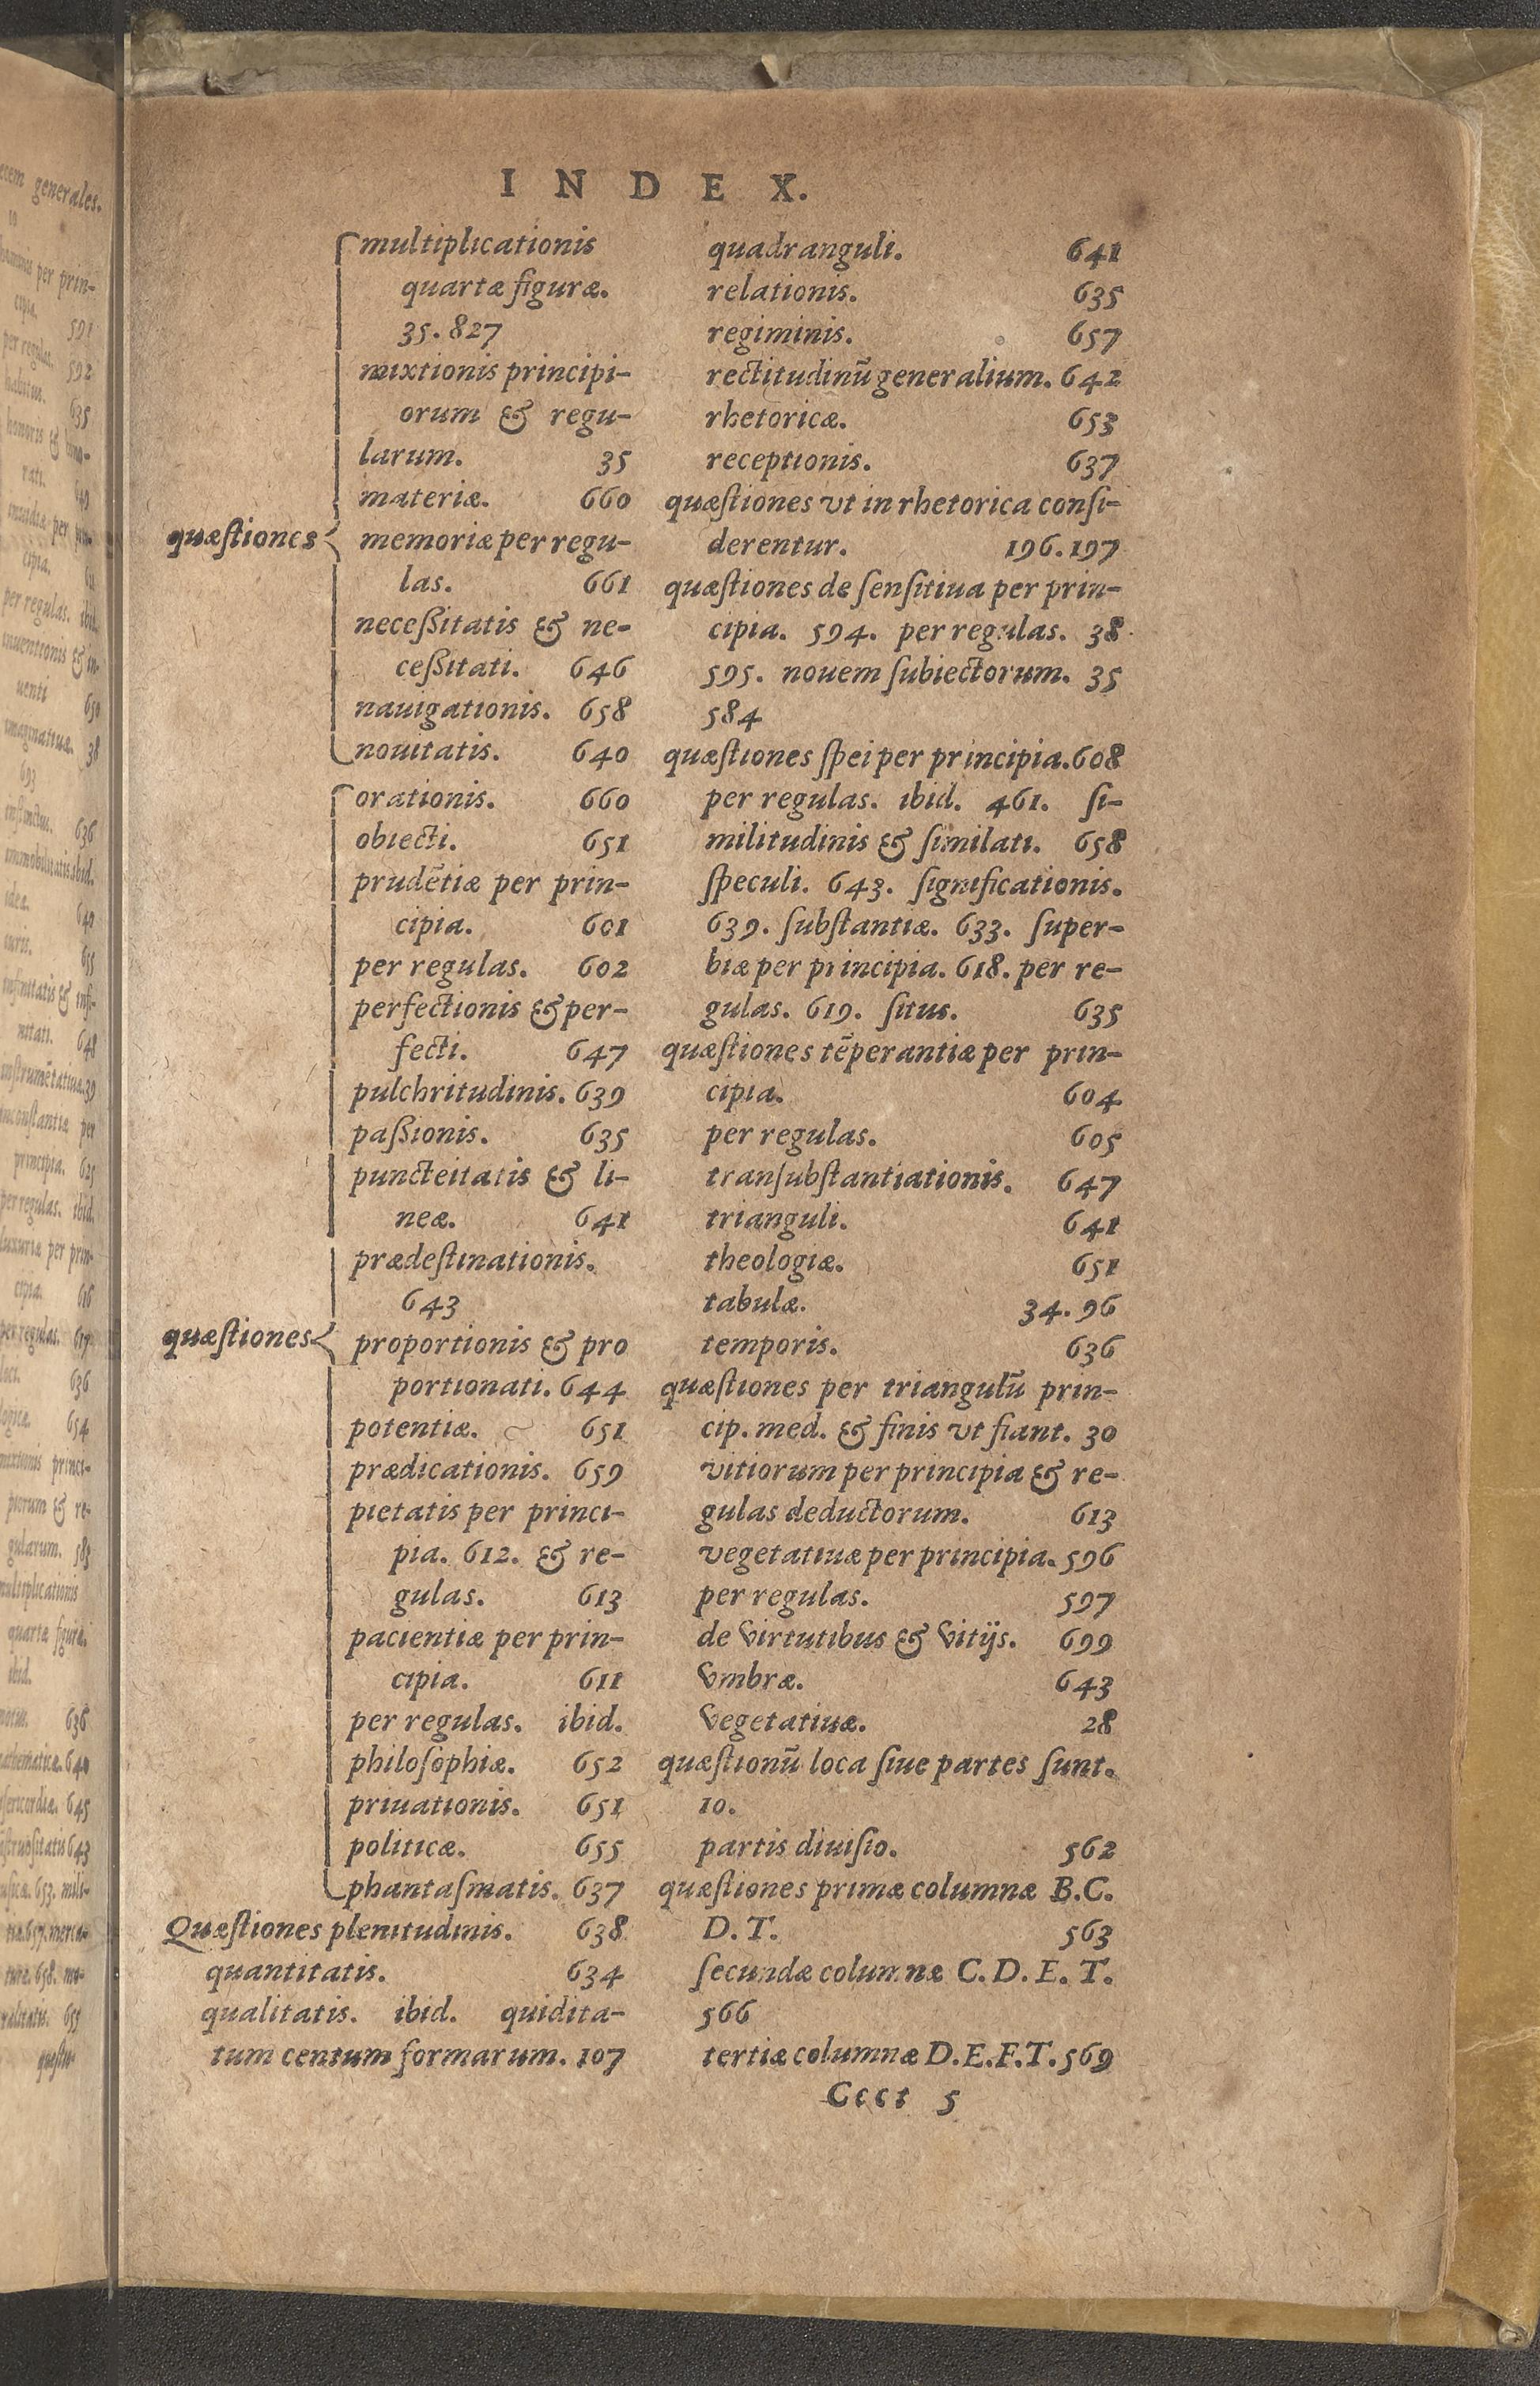 INDEX.
multiplicationis
quartæ figuræ.
35. 827
mixtionis principi-
orum & regu-
larum. 35
materiæ. 660
quæſtiones memoriæ per regu-
las. 661
neceſſitatis & ne-
ceſſitati. 646
nauigationis. 658
nouitatis. 640
orationis. 660
obiecti. 651
prudētiæ per prin-
cipia. 601
per regulas. 602
perfectionis & per-
fecti. 647
pulchritudinis. 639
paſſionis. 635
puncteitatis & li-
neæ. 641
prædeſtinationis.
643
quæſtiones proportionis & pro
portionati. 644
potentiæ. 651
prædicationis. 659
pietatis per princi-
pia. 612. & re-
gulas. 613
pacientiæ per prin-
cipia. 611
per regulas. ibid.
philoſophiæ. 652
priuationis. 651
politicæ. 655
phantaſmatis. 637
Quæſtiones plenitudinis. 638
quantitatis. 634
qualitatis. ibid. quidita-
tum centum formarum. 107
quadranguli. 641
relationis. 635
regiminis. 657
rectitudinū generalium. 642
rhetoricæ. 653
receptionis. 637
quæſtiones vt in rhetorica conſi-
derentur. 196. 197
quæſtiones de ſenſitiua per prin-
cipia. 594. per regulas. 38
595. nouem ſubiectorum. 35
584
quæſtiones ſpei per principia. 608
per regulas. ibid. 461. ſi-
militudinis & ſimilati. 658
ſpeculi. 643. ſignificationis.
639. ſubſtantiæ. 633. ſuper-
biæ per principia. 618. per re-
gulas. 619. ſitus. 635
quæſtiones tēperantiæ per prin-
cipia. 604
per regulas. 605
tranſubſtantiationis. 647
trianguli. 641
theologiæ. 651
tabulæ. 34. 96
temporis. 636
quæſtiones per triangulū prin-
cip. med. & finis vt fiant. 30
vitiorum per principia & re-
gulas deductorum. 613
vegetatiuæ per principia. 596
per regulas. 597
de virtutibus & vitijs. 699
vmbræ. 643
vegetatiuæ. 28
quæſtionū loca ſiue partes ſunt.
10.
partis diuiſio. 562
quæſtiones primæ columnæ B.C.
D. T. 563
ſecundæ columnæ C. D. E. T.
566
tertiæ columnæ D.E.F.T. 569
Cccc 5